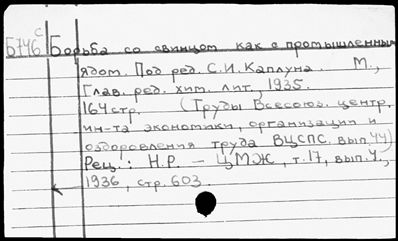 Б746 с Борьба со свинцом как с промышленным
ядом. Под ред. С.И. Каплуна. М.,
Глав. ред. хим. лит., 1935.
164 стр. (Труды Всесоюз. центр.
ин-та экономики, организации и
оздоровления труда ВЦСПС. вып. 44)
Рец.: Н.Р. — ЦМЖ, т.17, вып.4.,
1936, стр. 603.